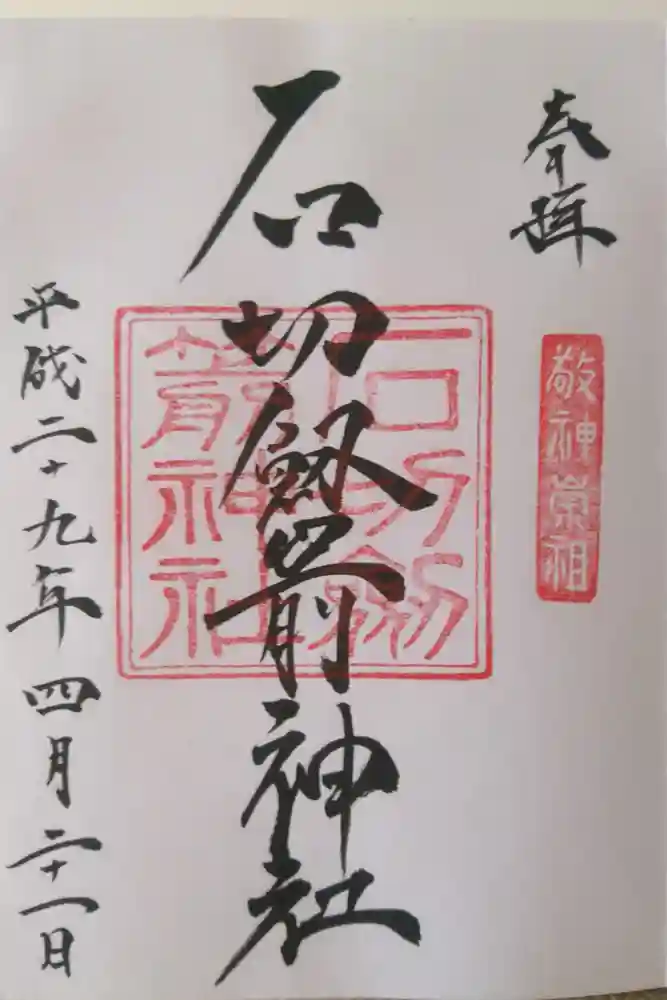 奉拝
敬神崇祖
石切劔箭神社
石切劔
箭神社
平成二十九年四月二十一日